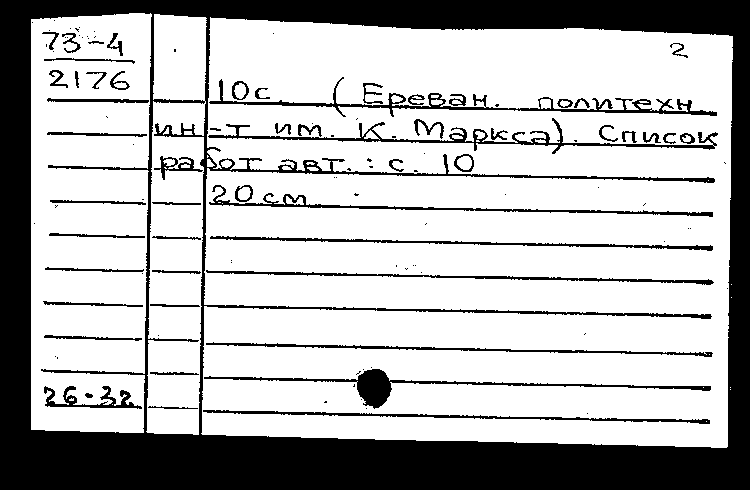 73-4
2176
2
10с. (Ереван. политехн.
ин-т им. К. Маркса). Список
работ авт.: с. 10
20 см
26.32